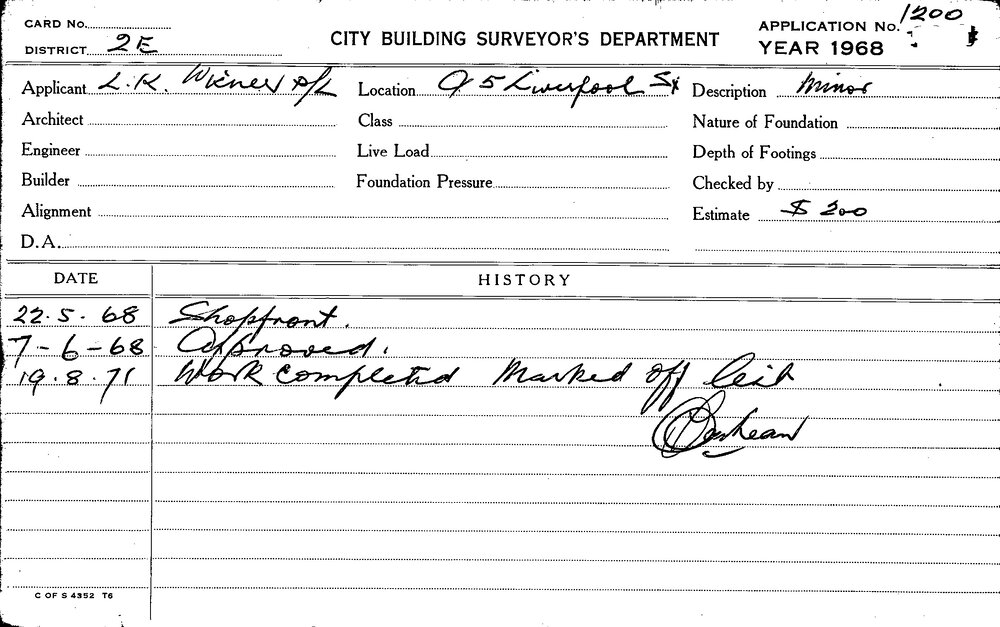 CARD No.
APPLICATION No. 1200
DISTRICT 2E
CITY BUILDING SURVEYOR'S DEPARTMENT
YEAR 1968
Applicant L.K. Wiener P/L Location 95 Liverpool St Description Minor
Architect Class Nature of Foundation
Engineer Live Load Depth of Footings
Builder Foundation Pressure Checked by
Alignment Estimate $ 200
D.A.
DATE HISTORY
22.5.68 Shopfront.
7-6-68 Approved.
19.8.71 Work completed Marked off list
C OF S 4352 T6